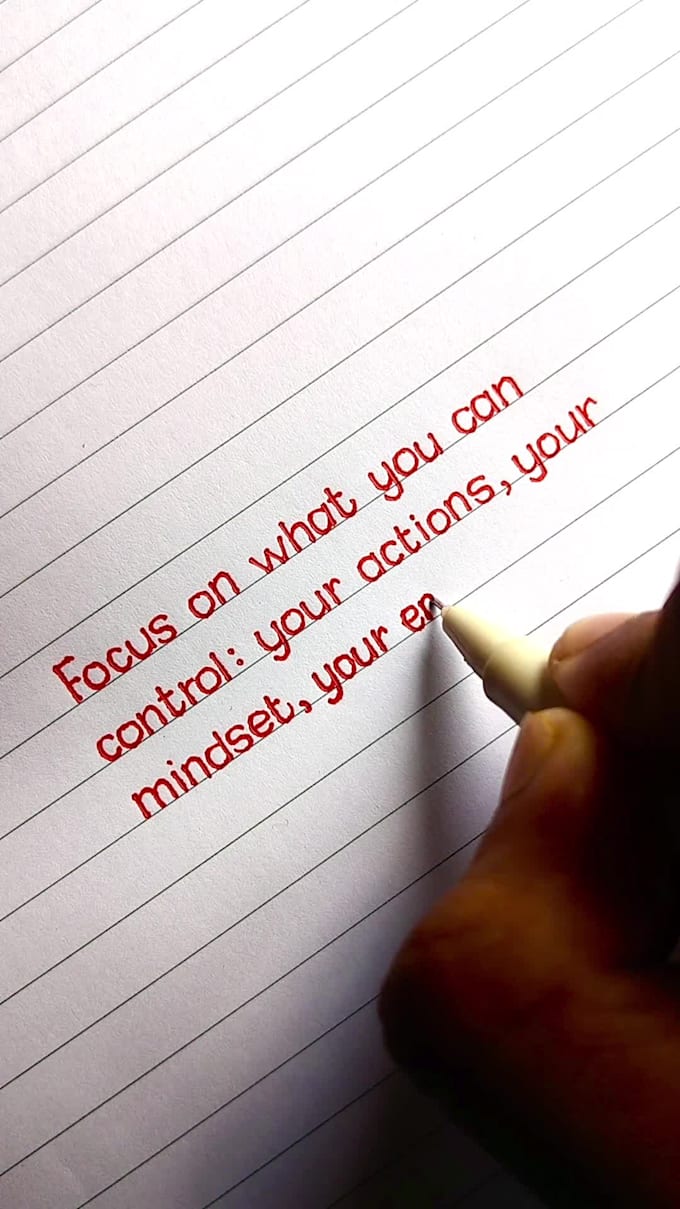 Focus on what you can
control: your actions, your
mindset, your en